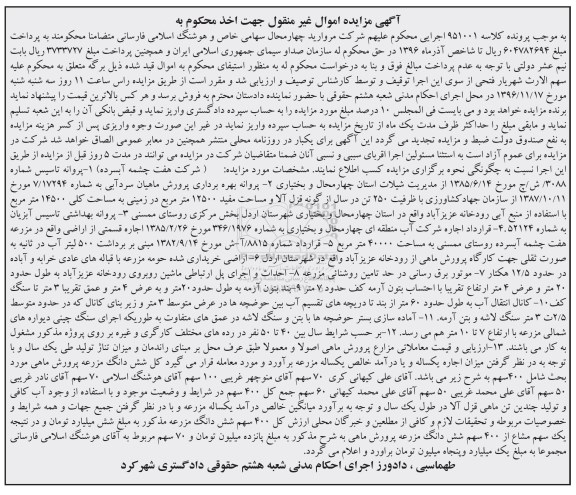 آگهی مزایده اموال غیر منقول جهت اخذ محکوم به
به موجب پرونده کلاسه ۹۵۱۰۰۱ اجرایی محکوم علیهم شرکت مروارید چهارمحال سهامی خاص و هوشنگ اسلامی فارسانی متضامنا محکومند به پرداخت
مبلغ ۶۰۴۷۸۲۶۹۴ ریال تا شاخص آذرماه ۱۳۹۶ در حق محکوم له سازمان صداو سیمای جمهوری اسلامی ایران و همچنین پرداخت مبلغ ۳۷۳۳۷۲۷ ریال بابت
نیم عشر دولتی با توجه به عدم پرداخت مبالغ فوق و بنا به درخواست محکوم له به منظور استیفای محکوم به اموال قید شده ذیل برگه متعلق به محکوم علیه
سهم الارث شهریار فتحی از سوی این اجرا توقیف و توسط کارشناس توصیف و ارزیابی شد و مقرر است از طریق مزایده راس ساعت ۱۱ روز سه شنبه شنبه
مورخ ۱۳۹۶/۱۱/۱۷ در محل اجرای احکام مدنی شعبه هشتم حقوقی با حضور نماینده دادستان محترم به فروش برسد و هر کس بالاترین قیمت را پیشنهاد نماید
برنده مزایده خواهد بود و می بایست فی المجلس ۱۰ درصد مبلغ مورد مزایده را به حساب سپرده دادگستری واریز نماید و قبض بانکی آن را به این شعبه تسلیم
نماید و مابقی مبلغ را حداکثر ظرف مدت یک ماه از تاریخ مزایده به حساب سپرده واریز نماید در غیر این صورت وجوه واریزی پس از کسر هزینه مزایده
به نفع صندوق دولت ضبط و مزایده تجدید می گردد این آگهی برای یکبار در روزنامه محلی منتشر همچنین در معابر عمومی الصاق خواهد شد شرکت در
مزایده برای عموم آزاد است به استثنا مسئولین اجرا اقربای سببی و نسبی آنان ضمنا متقاضیان شرکت در مزایده می توانند در مدت ۵ روز قبل از مزایده از طریق
این اجرا نسبت به چگونگی نحوه برگزاری مزایده کسب اطلاع نمایند. مشخصات مورد مزایده: ( شرکت هفت چشمه آبسرده) ۱-پروانه تاسیس شماره
۳۰۸۸/ش/ج مورخ ۱۳۸۵/۶/۱۴ از مدیریت شیلات استان چهارمحال و بختیاری ۲- پروانه بهره برداری پرورش ماهیان سردآبی به شماره ۷/۱۷۲۹۴ مورخ
۱۳۸۷/۱۰/۱۱ از سازمان جهادکشاورزی با ظرفیت ۲۵۰ تن در سال از گونه قزل آلا و مساحت مفید ۱۲۵۰۰ متر مربع در زمینی به مساحت کلی ۱۴۵۰۰ متر مربع
با استفاده از منبع آبی رودخانه عزیزآباد واقع در استان چهارمحال وبختیاری شهرستان اردل بخش مرکزی روستای ممسنی ۳- پروانه بهداشتی تاسیس آبزیان
به شماره ۵۲۱۲۴ .۴- قرارداد اجاره شرکت آب منطقه ای چهارمحال و بختیاری به شماره ۳۴۶/۱۹۷۶ مورخ ۱۳۸۵/۲/۲۶ اجاره قسمتی از اراضی واقع در مزرعه
هفت چشمه آبسرده روستای ممسنی به مساحت ۴۰۰۰۰ متر مربع ۵- قرارداد شماره ۸۸۱۵/آ/ش مورخ ۱۳۸۲/۹/۱۴ مبنی بر برداشت ۵۰۰ لیتر آب در ثانیه به
صورت ثقلی جهت کارگاه پرورش ماهی از رودخانه عزیزآباد واقع در شهرستان اردل ۶- اراضی خریداری شده حومه مزرعه با قباله های عادی خرابه و آباده
در حدود ۱۲/۵ هکتار ۷- موتور برق رسانی در حد تامین روشنایی مزرعه ۸- احداث و اجرای پل ارتباطی ماشین روبروی رودخانه عزیزآباد به طول حدود
۲۰ متر و عرض ۴ متر ارتفاع تقریبا با احتساب بتون آرمه کف حدود ۷ متر ۹- بند بتون آرمه به طول حدود۲۰متر و به عرض ۴ متر و عمق تقریبا ۳ متر تا سنگ
کف ۱۰- کانال انتقال آب به طول حدود ۶۰ متر از بند تا دریچه های تقسیم آب بین حوضچه ها در عرض متوسط ۳ متر و زیر بنای کانال که در حدود متوسط
۲/۵ت ۳ متر سنگ لاشه و بتن آرمه. ۱۱- آماده سازی بستر حوضچه ها با بتن و سنگ لاشه در عمق های متفاوت به طوریکه اجرای سنگ چینی دیواره های
شمالی مزرعه با ارتفاع ۷ تا ۱۰ متر هم می رسد. ۱۲-بر حسب شرایط سال بین ۴۰ تا ۵۰ نفر در رده های مختلف کارگری و غیره بر روی پروژه مذکور مشغول
به کار می باشند. ۱۳-ارزیابی و قیمت معاملاتی مزارع پرورش ماهی اصولا و معمولا طبق عرف محل بر مبنای راندمان و میزان تناژ تولید طی یک سال و یا
توجه به در نظر گرفتن میزان اجاره یکساله و یا درآمد خالص یکساله مزرعه برآورد و مورد معامله قرار می گیرد کل شش دانگ مزرعه پرورش ماهی مورد
بحث شامل ۴۰۰سهم به شرح زیر می باشد. آقای علی کیهانی کری ۷۰ سهم آقای منوچهر غریبی ۱۰۰ سهم آقای هوشنگ اسلامی ۷۰ سهم آقای نادر غریبی
۵۰ سهم آقای علی محمد غریبی ۵۰ سهم آقای علی محمد کیهانی ۶۰ سهم جمع کل ۴۰۰ سهم در شرایط و وضعیت موجود و با استفاده از وجود آب کافی
و تولید چندین تن ماهی قزل آلا در طول یک سال و توجه به برآورد میانگین خالص درآمد یکساله مزرعه و با در نظر گرفتن جمیع جهات و همه شرایط و
خصوصیات مربوطه و تحقیقات لازم و کافی از مطلعین و خبرگان محلی ارزش کل ۴۰۰ سهم شش دانگ مزرعه مذکور به مبلغ شش میلیارد تومان و در نتیجه
یک سهم مشاع از ۴۰۰ سهم شش دانگ مزرعه پرورش ماهی به شرح مذکور به مبلغ پانزده میلیون تومان و ۷۰ سهم مربوط به آقای هوشنگ اسلامی فارسانی
مجموعا به مبلغ یک میلیارد وپنجاه میلیون تومان برآورد و اعلام می گردد.
طهماسبی ، دادورز اجرای احکام مدنی شعبه هشتم حقوقی دادگستری شهرکرد